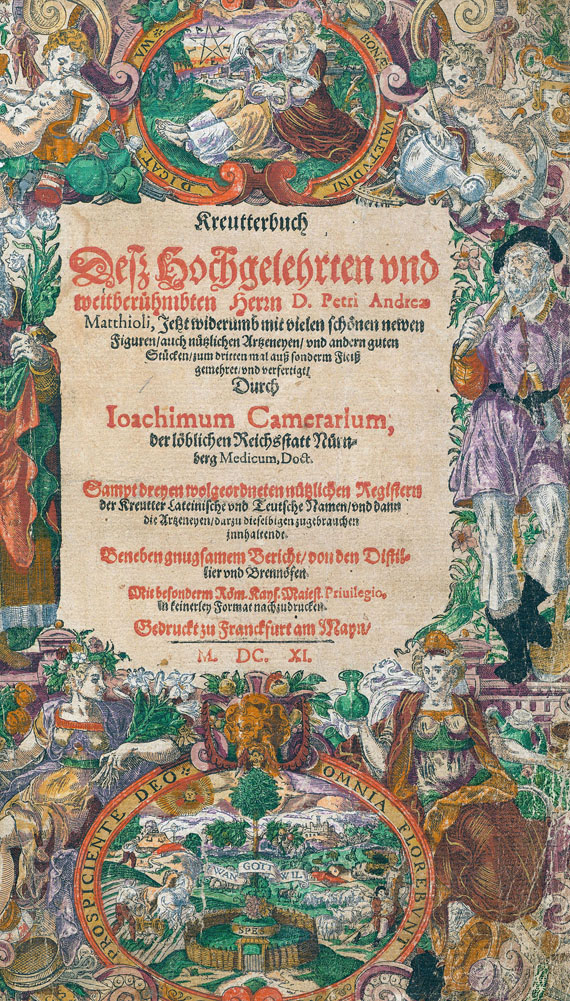 VIN DICAT
BONÆ VALETUDINI
Kreutterbuch
Deß Hochgelehrten vnd
weitberühmbten Herrn D. Petri Andreæ
Matthioli, Jetzt widerumb mit vielen schönen newen
Figuren/auch nützlichen Artzeneyen/ vnd andern guten
Stücken/zum dritten mal auß sonderm Fleiß
gemehret/vnd verfertigt/
Durch
Ioachimum Camerarium,
der löblichen Reichsstatt Nürn-
berg Medicum, Doct.
Sampt dreyen wolgeordneten nützlichen Registern
der Kreutter Lateinische vnd Teutsche Namen/vnd dann
die Artzeneyen/darzu dieselbigen zugebrauchen
innhaltendt.
Beneben gnugsamem Bericht/von den Distil-
lier vnd Brennöfen.
Mit besonderm Röm. Kays. Maiest. Priuilegio,
in keinerley Format nachzudrucken.
Gedruckt zu Franckfurt am Mayn/
M. DC. XI.
PROSPICIENTE DEO
OMNIA FLOREBVNT
WAN GOTT WIL
SPES